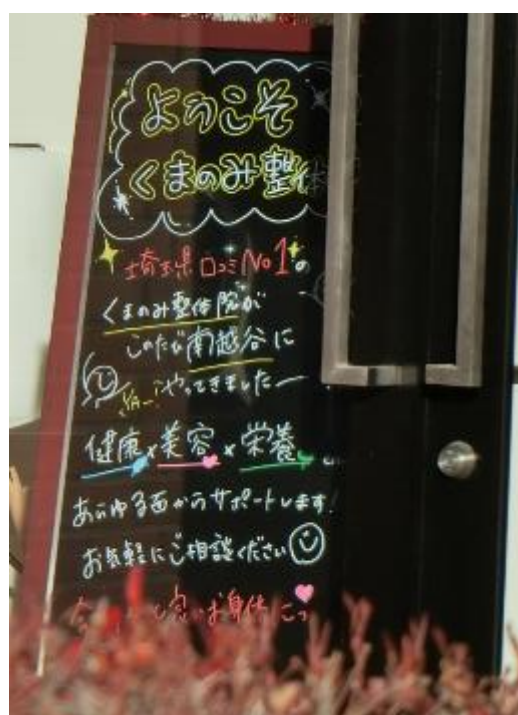 ようこそ
くまのみ整体
埼玉県口コミNo1の
くまのみ整体院が
このたび南越谷に
やってきましたー
健康×美容×栄養
あらゆる面からサポートします!
お気軽にご相談ください
お身体に